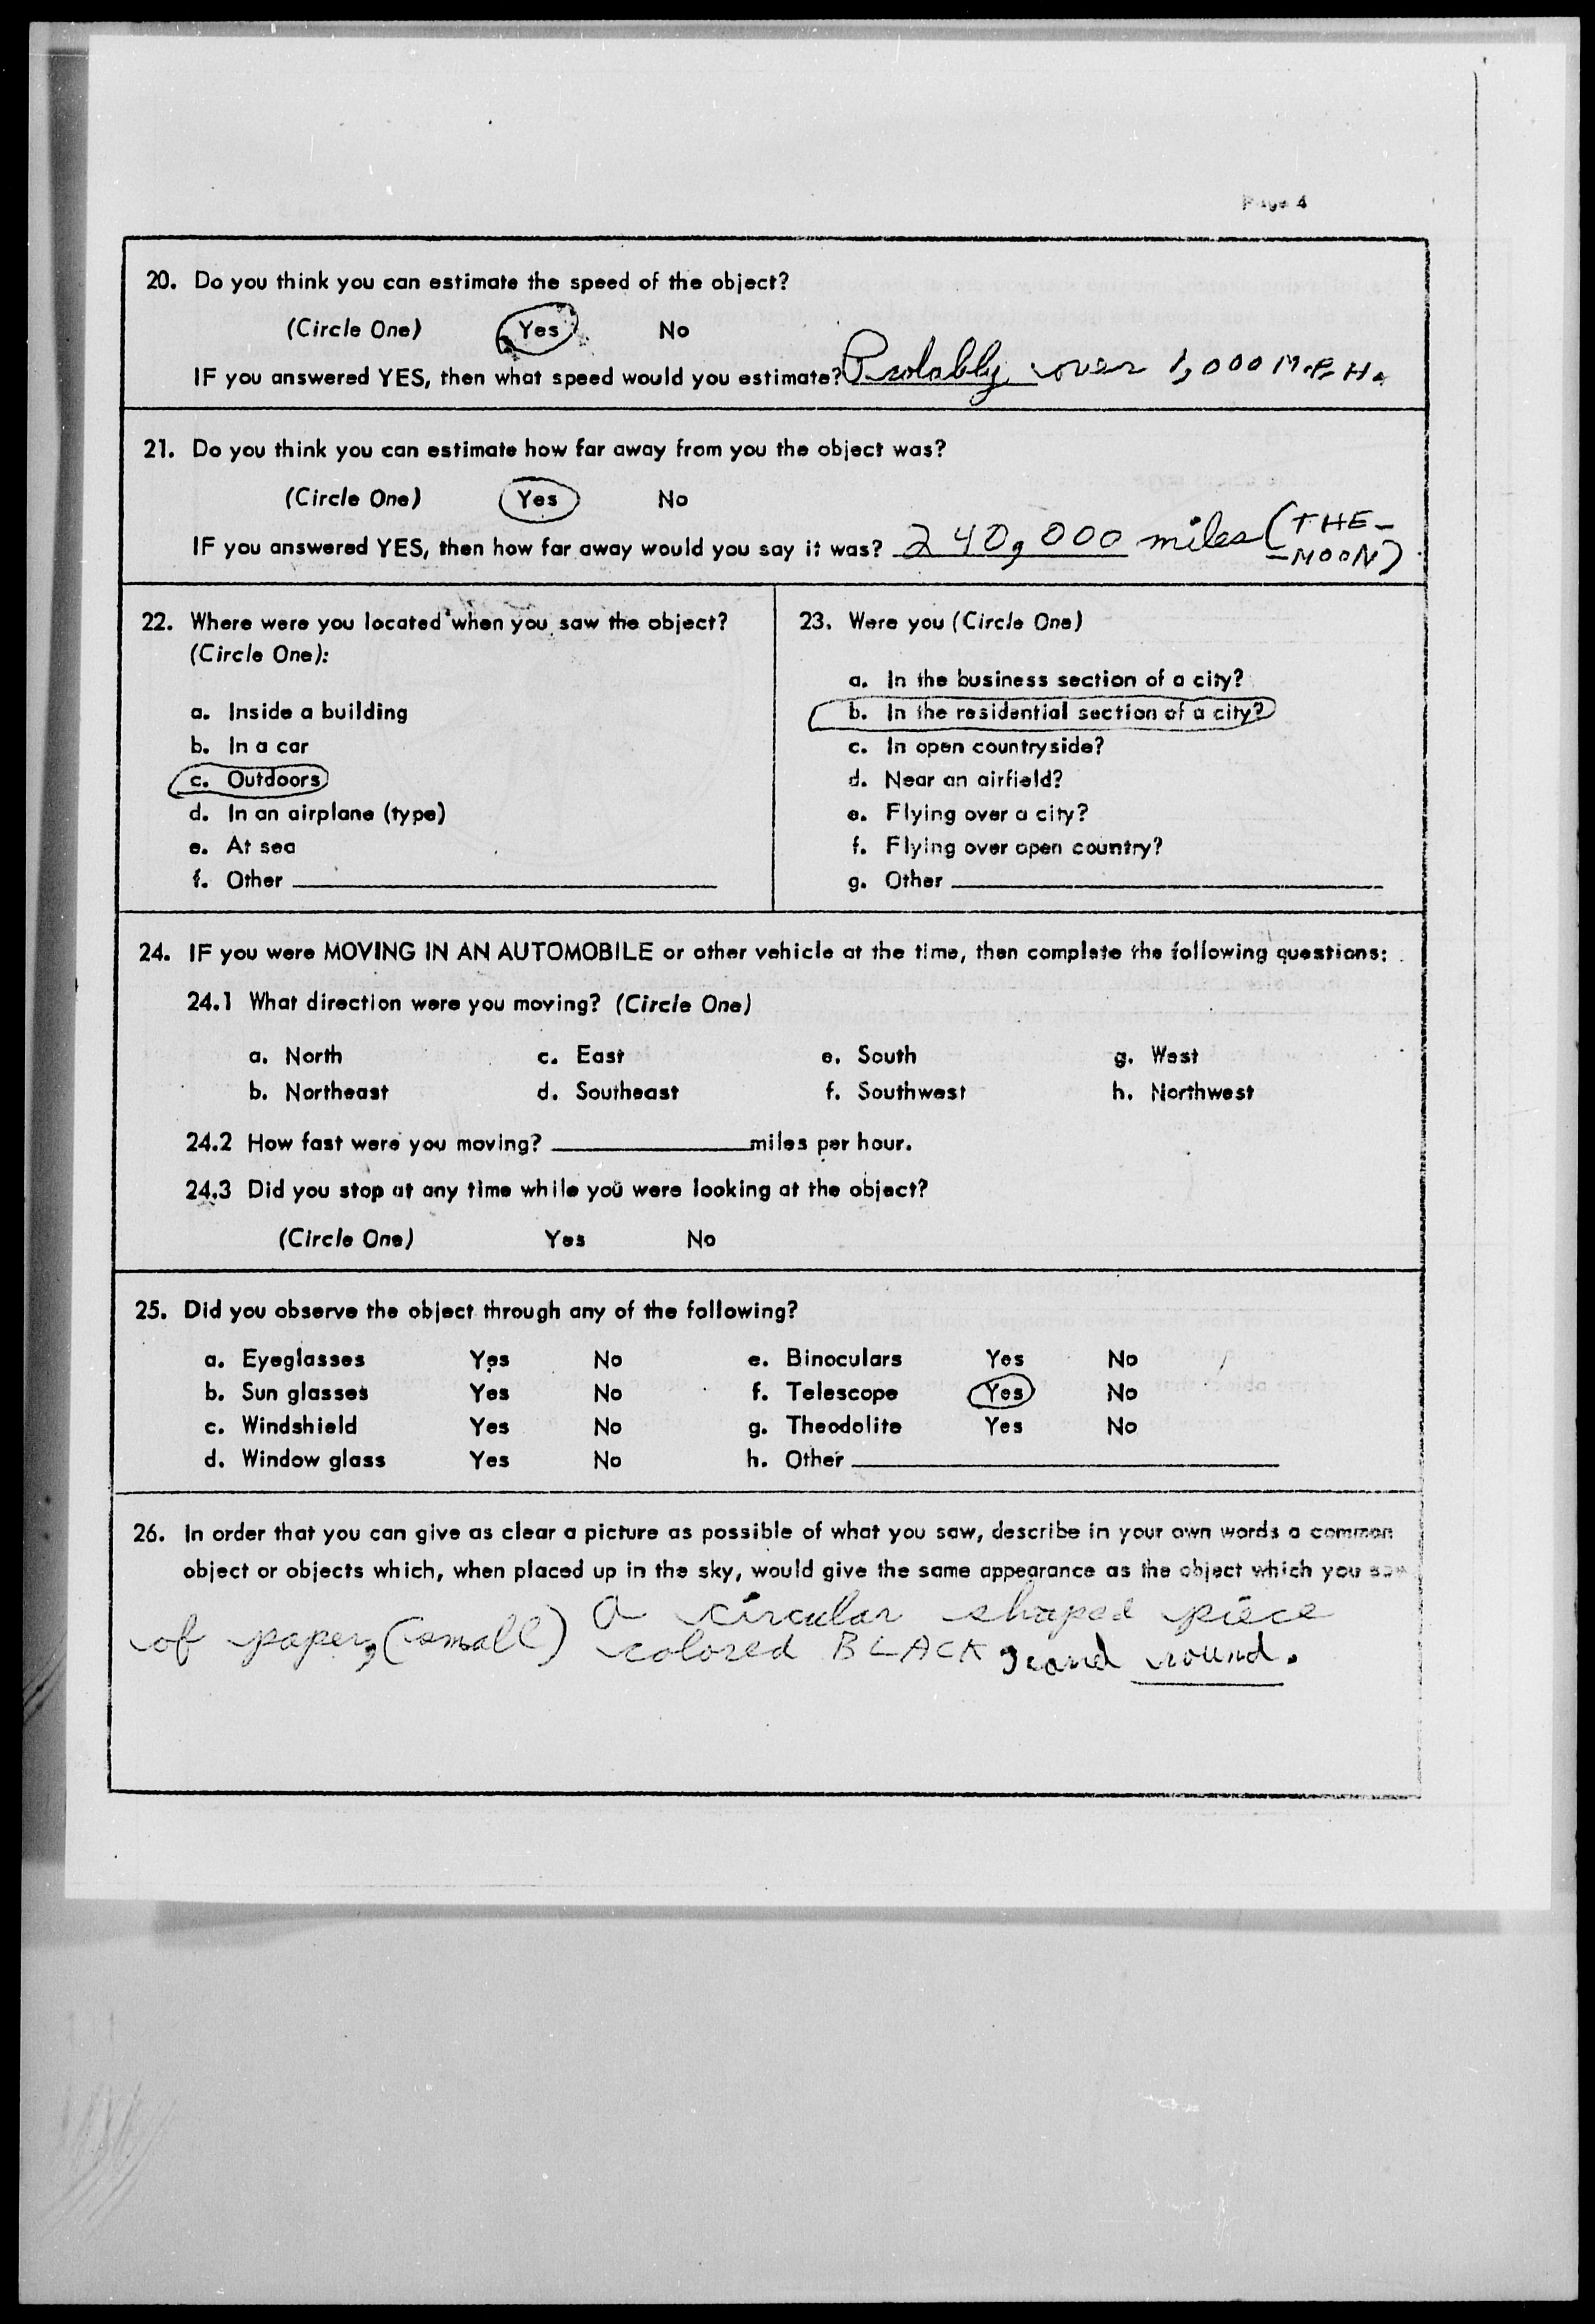 Page 4
20. Do you think you can estimate the speed of the object?
(Circle One) Yes No
IF you answered YES, then what speed would you estimate? Probably over 1,000 M.P.H.
21. Do you think you can estimate how far away from you the object was?
(Circle One) Yes No
IF you answered YES, then how far away would you say it was? 240,000 miles (THE-
-MOON)
22. Where were you located when you saw the object?
(Circle One):
a. Inside a building
b. In a car
c. Outdoors
d. In an airplane (type)
e. At sea
f. Other
23. Were you (Circle One)
a. In the business section of a city?
b. In the residential section of a city?
c. In open countryside?
d. Near an airfield?
e. Flying over a city?
f. Flying over open country?
g. Other
24. IF you were MOVING IN AN AUTOMOBILE or other vehicle at the time, then complete the following questions:
24.1 What direction were you moving? (Circle One)
a. North c. East e. South g. West
b. Northeast d. Southeast f. Southwest h. Northwest
24.2 How fast were you moving? miles per hour.
24.3 Did you stop at any time while you were looking at the object?
(Circle One) Yes No
25. Did you observe the object through any of the following?
a. Eyeglasses Yes No e. Binoculars Yes No
b. Sun glasses Yes No f. Telescope Yes No
c. Windshield Yes No g. Theodolite Yes No
d. Window glass Yes No h. Other
26. In order that you can give as clear a picture as possible of what you saw, describe in your own words a common
object or objects which, when placed up in the sky, would give the same appearance as the object which you saw
a circular shaped piece
of paper, (small) colored BLACK, and round.